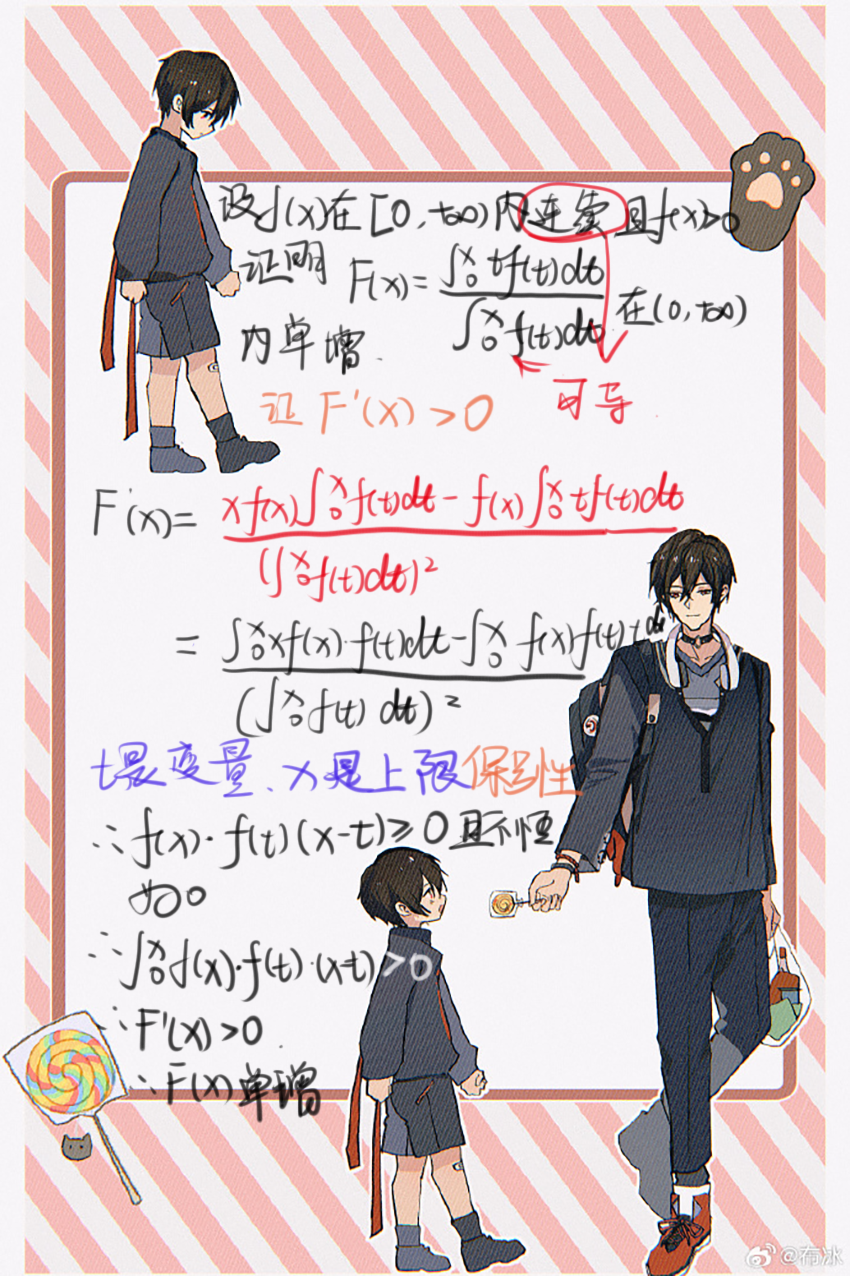 设f(x)在[0,+∞)内连续且f(x)>0
证明 F(x)=∫₀ˣtf(t)dt/∫₀ˣf(t)dt 在(0,+∞)
内单增.
可导.
证 F'(x)>0
F'(x)= xf(x)∫₀ˣf(t)dt-f(x)∫₀ˣtf(t)dt/(∫₀ˣf(t)dt)²
= ∫₀ˣxf(x)·f(t)dt-∫₀ˣf(x)f(t)t dt/(∫₀ˣf(t)dt)²
t是变量,x是上限 保号性
∴f(x)·f(t)(x-t)≥0且不恒
为0
∴∫₀ˣf(x)·f(t)·(x-t)>0
∴F'(x)>0.
∴F(x)单增
@布冰